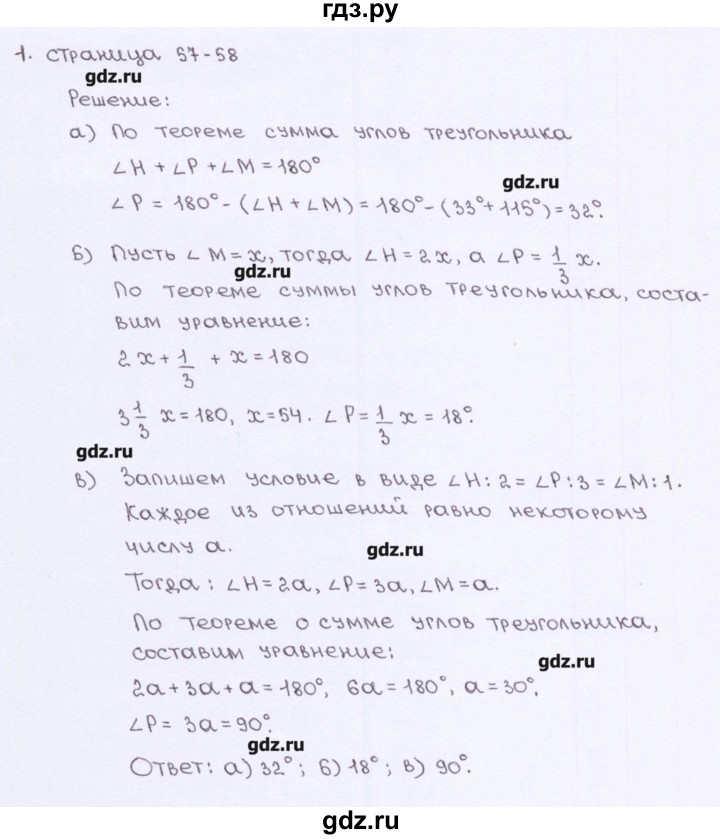 гдз.ру
1. страница 57-58
gdz.ru
Решение:
а) По теореме сумма углов треугольника
∠H + ∠P + ∠M = 180°
gdz.ru
∠P = 180° - (∠H + ∠M) = 180° - (33° + 115°) = 32°.
б) Пусть ∠M = x, тогда ∠H = 2x, а ∠P = 1/3 x.
gdz.ru
По теореме суммы углов треугольника, соста-
вим уравнение:
2x + 1/3 + x = 180
3 1/3 x = 180, x = 54. ∠P = 1/3 x = 18°.
gdz.ru
в) Запишем условие в виде ∠H : 2 = ∠P : 3 = ∠M : 1.
Каждое из отношений равно некоторому
числу a.
gdz.ru
Тогда: ∠H = 2a, ∠P = 3a, ∠M = a.
По теореме о сумме углов треугольника,
составим уравнение:
gdz.ru
2a + 3a + a = 180°, 6a = 180°, a = 30°.
∠P = 3a = 90°.
gdz.ru
Ответ: а) 32°; б) 18°; в) 90°.
gdz.ru